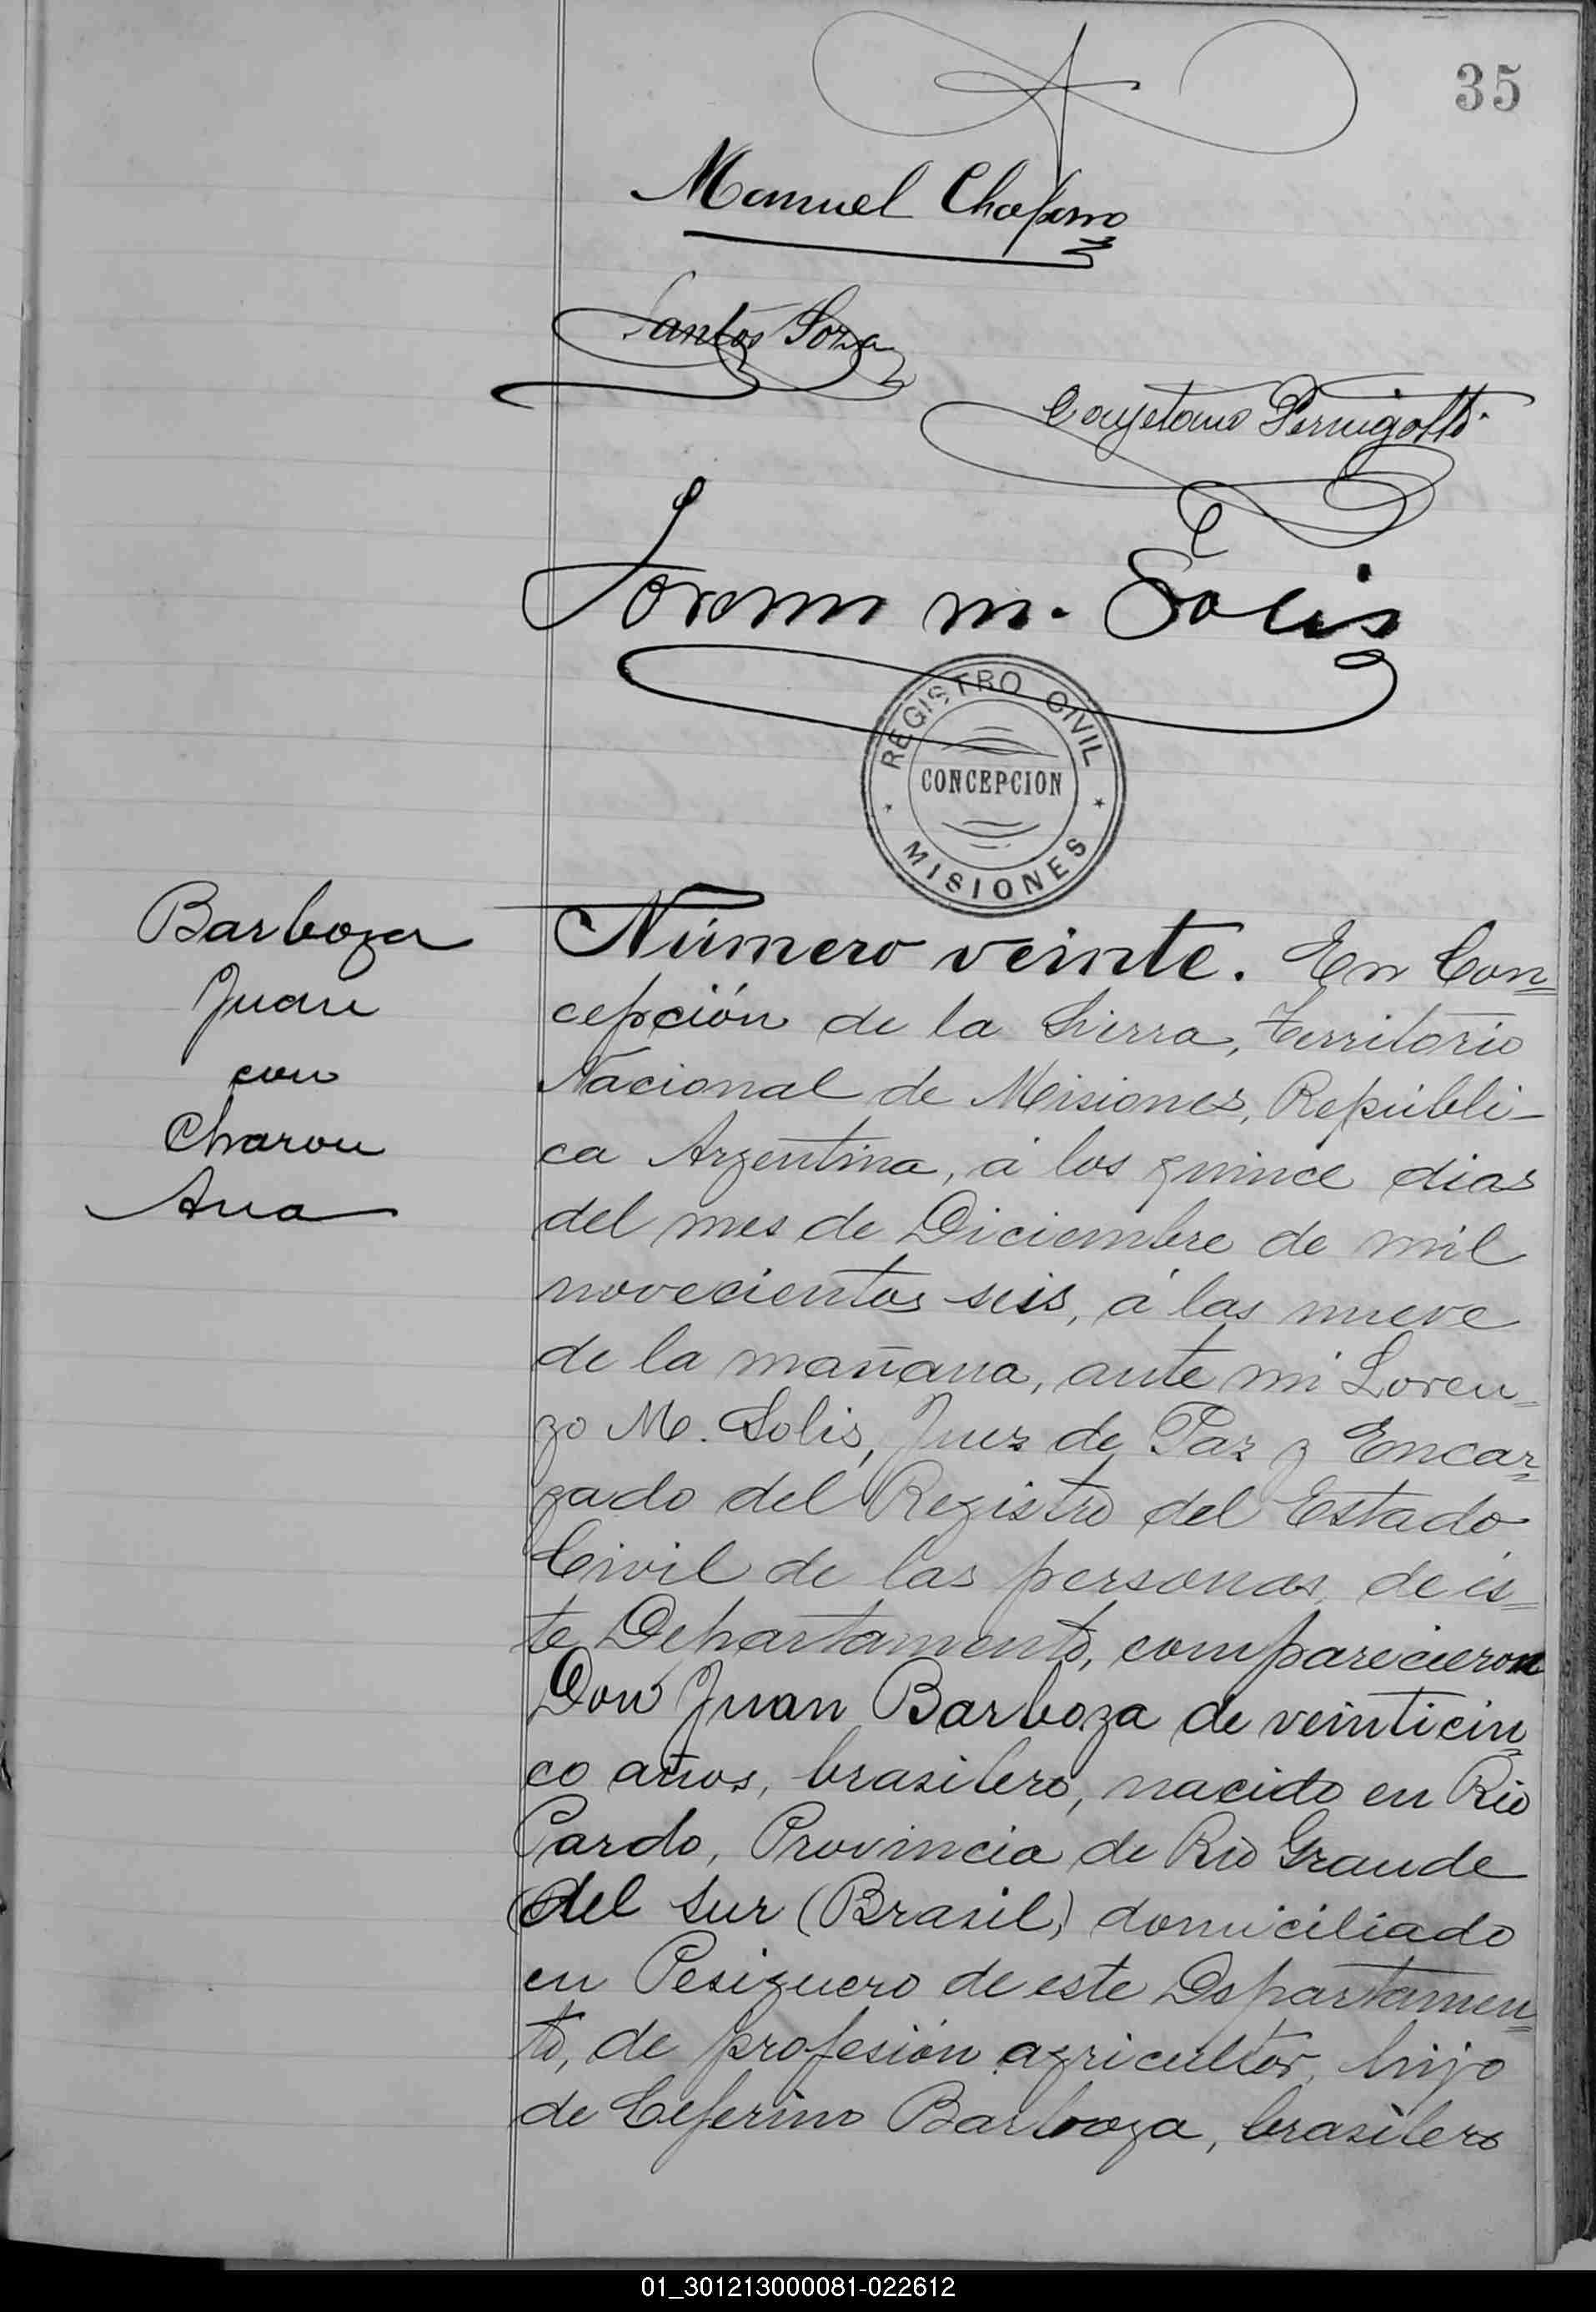 35
Manuel Chaparro
Santos Soza
Cayetano Pernigotti
Lorenzo M. Solis
REGISTRO CIVIL
CONCEPCION
MISIONES
Barboza
Juan
con
Charou
Ana
Número veinte. En Con=
cepción de la Sierra, Territorio
Nacional de Misiones, Repúbli-
ca Argentina, á los quince dias
del mes de Diciembre de mil
novecientos seis, á las nueve
de la mañana, ante mi Loren=
zo M. Solis, Juez de Paz y Encar=
gado del Registro del Estado
Civil de las personas, de és=
te Departamento, comparecieron
Don Juan Barboza de veinticin=
co años, brasilero, nacido en Rio
Pardo, Provincia de Rio Grande
del Sur (Brasil) domiciliado
en Pesiguero de este Departamen=
to, de profesión agricultor, hijo
de Ceferino Barboza, brasilero
01_301213000081-022612